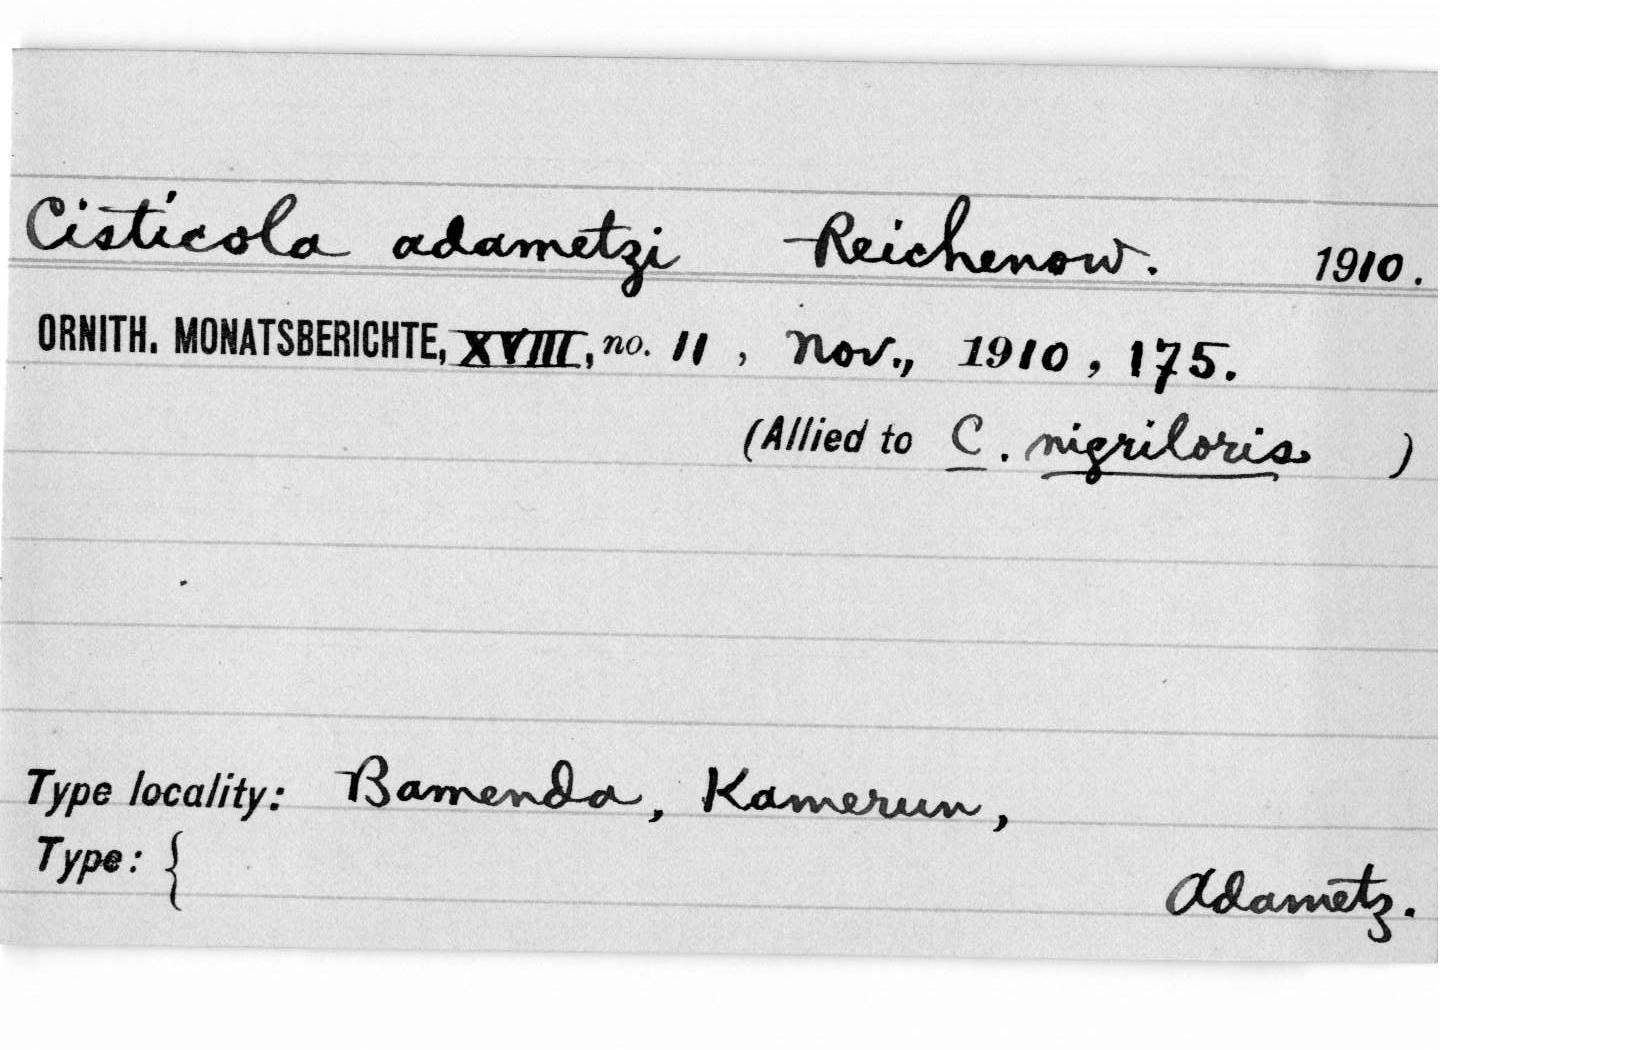 Cisticola adametzi Reichenow. 1910.
ORNITH. MONATSBERICHTE, XVIII, no. 11, Nov., 1910, 175.
(Allied to C. nigriloris )
Type locality: Bamenda, Kamerun,
Type: {
Adametz.